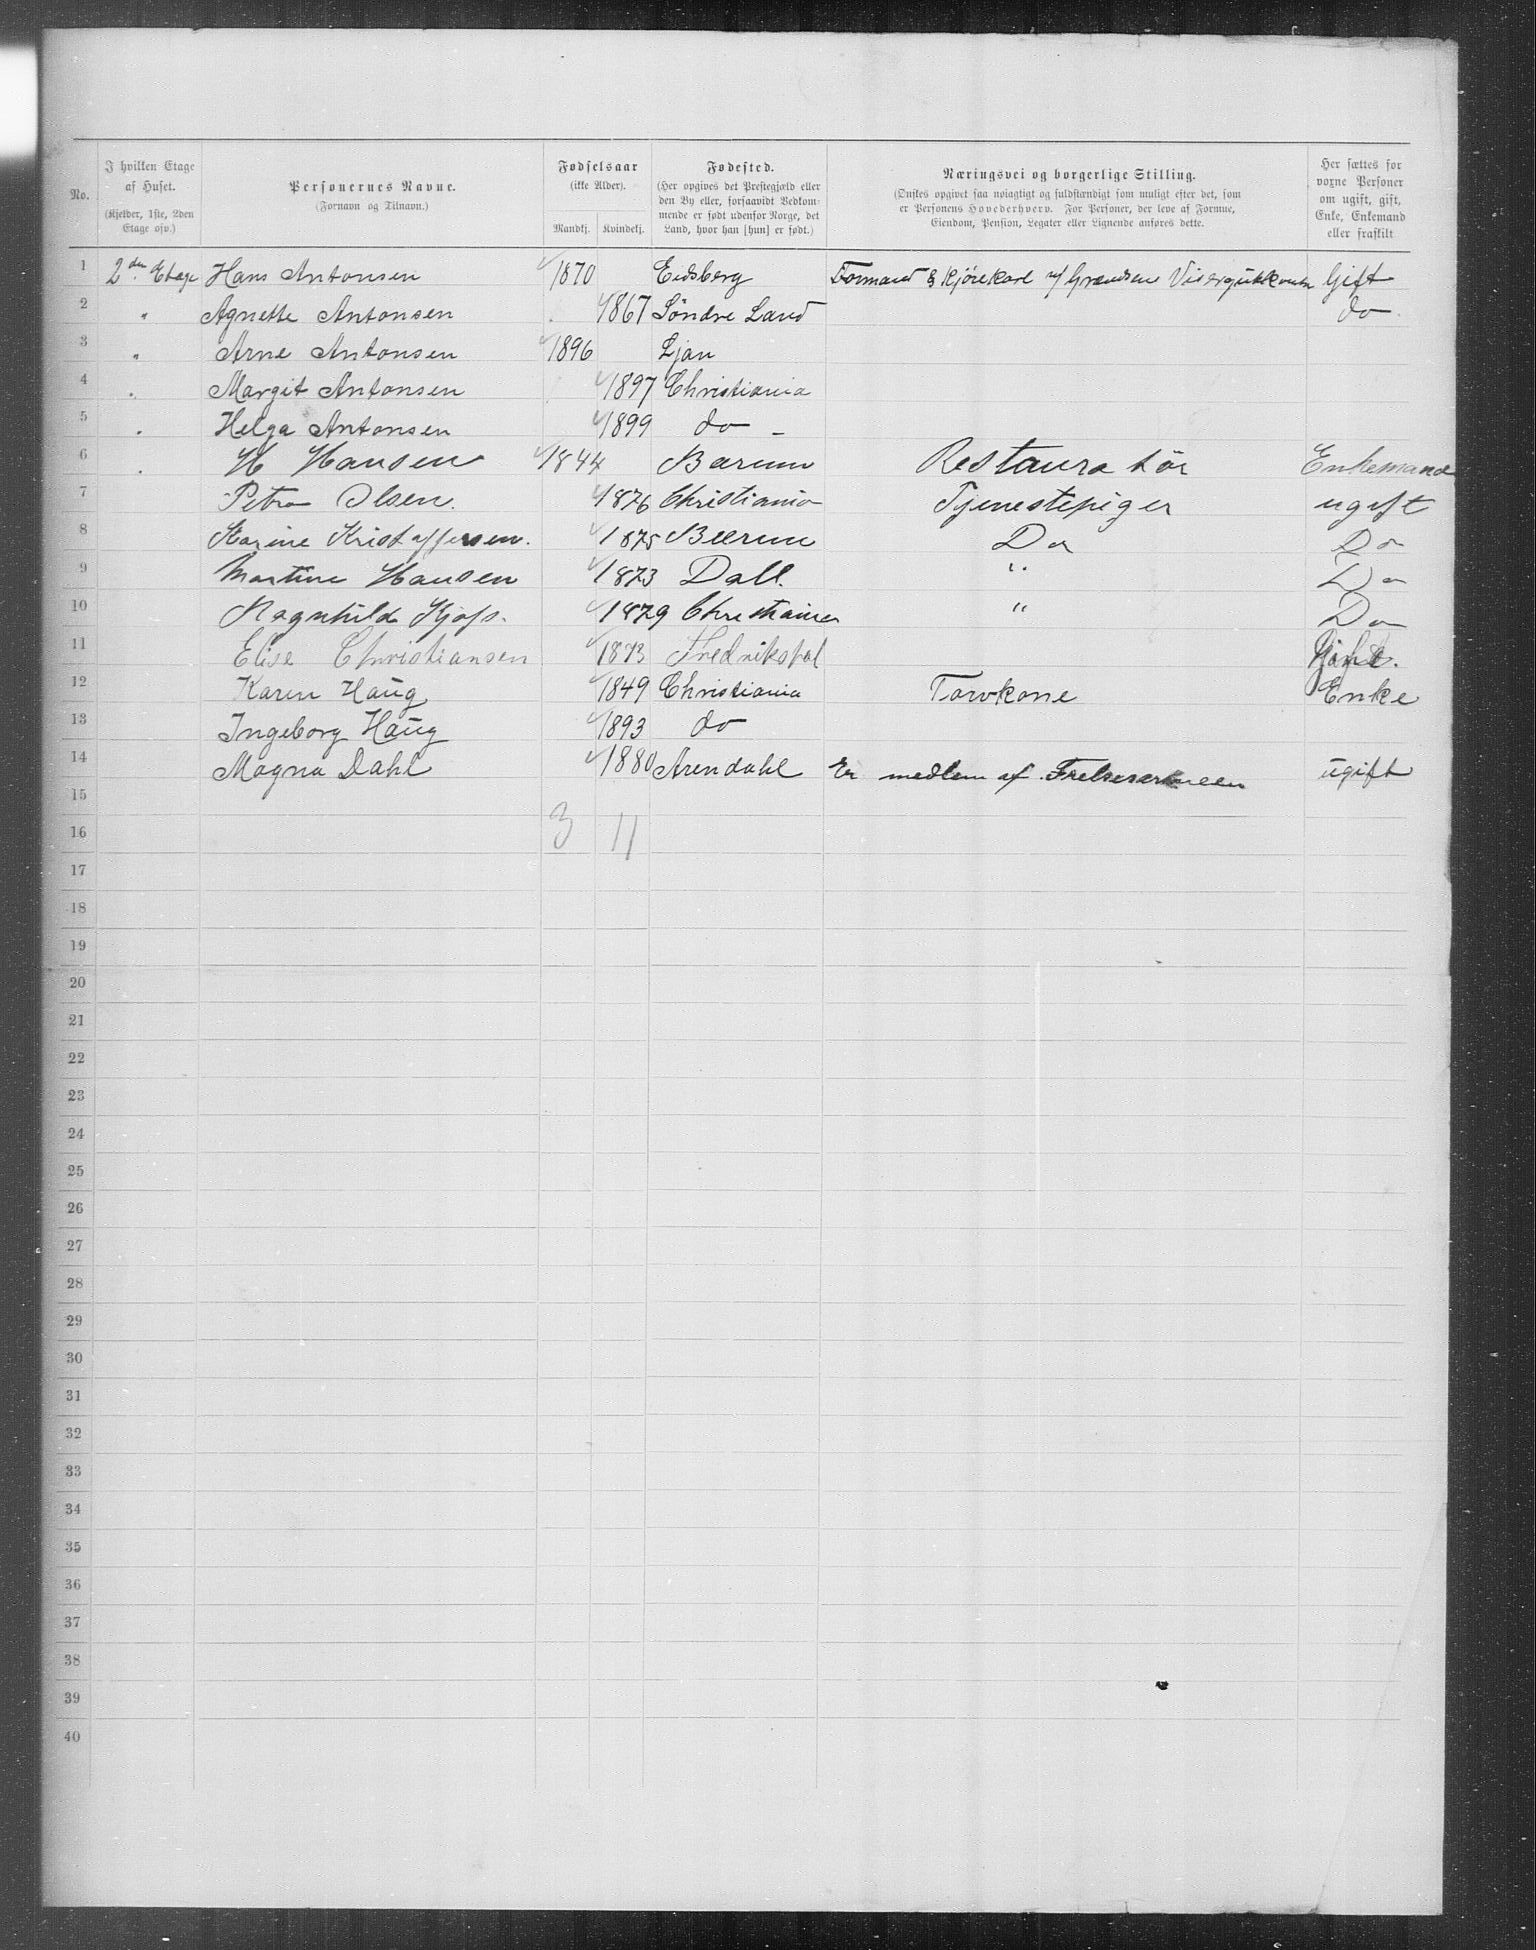 No.
I hvilken Etage af Huset. (Kjelder, 1ste, 2den Etage osv.)
Personernes Navne. (Fornavn og Tilnavn.)
Fødselsaar (ikke Alder). Mandkj. Kvindekj.
Fødested. (Her opgives det Prestegjæld eller den By eller, forsaavidt Vedkommende er født udenfor Norge, det Land, hvor han [hun] er født.)
Næringsvei og borgerlige Stilling. (Ønskes opgivet saa nøiagtigt og fuldstændigt som muligt efter det, som er Personens Hovederhverv. For Personer, der leve af Formue, Eiendom, Pension, Legater eller Lignende anføres dette.
Her sættes for voxne Personer om ugift, gift, Enke, Enkemand eller fraskilt
1 2den Etage Hans Antonsen 1870 Eidsberg Formand & Kjørekarl Grændsen Gift
2 " Agnette Antonsen 1867 Søndre Land do
3 " Arne Antonsen 1896 Ljan
4 " Margit Antonsen 1897 Christiania
5 " Helga Antonsen 1899 do -
6 " H Hansen 1844 Bærum Restauratør Enkemand
7 Petra Olsen. 1876 Christiania Tjenestepiger ugift
8 Karine Kristoffersen. 1875 Bærum Do Do
9 Martine Hansen 1873 Dall. " Do
10 Ragnhild 1879 Christiania " Do
11 Elise Christiansen 1873 Fredrikstal
12 Karen Haug 1849 Christiania Torvkone Enke
13 Ingeborg Haug 1893 do
14 Magna Dahl 1880 Arendahl Er medlem af Frelsesarmeen ugift
15
16 3 11
17
18
19
20
21
22
23
24
25
26
27
28
29
30
31
32
33
34
35
36
37
38
39
40